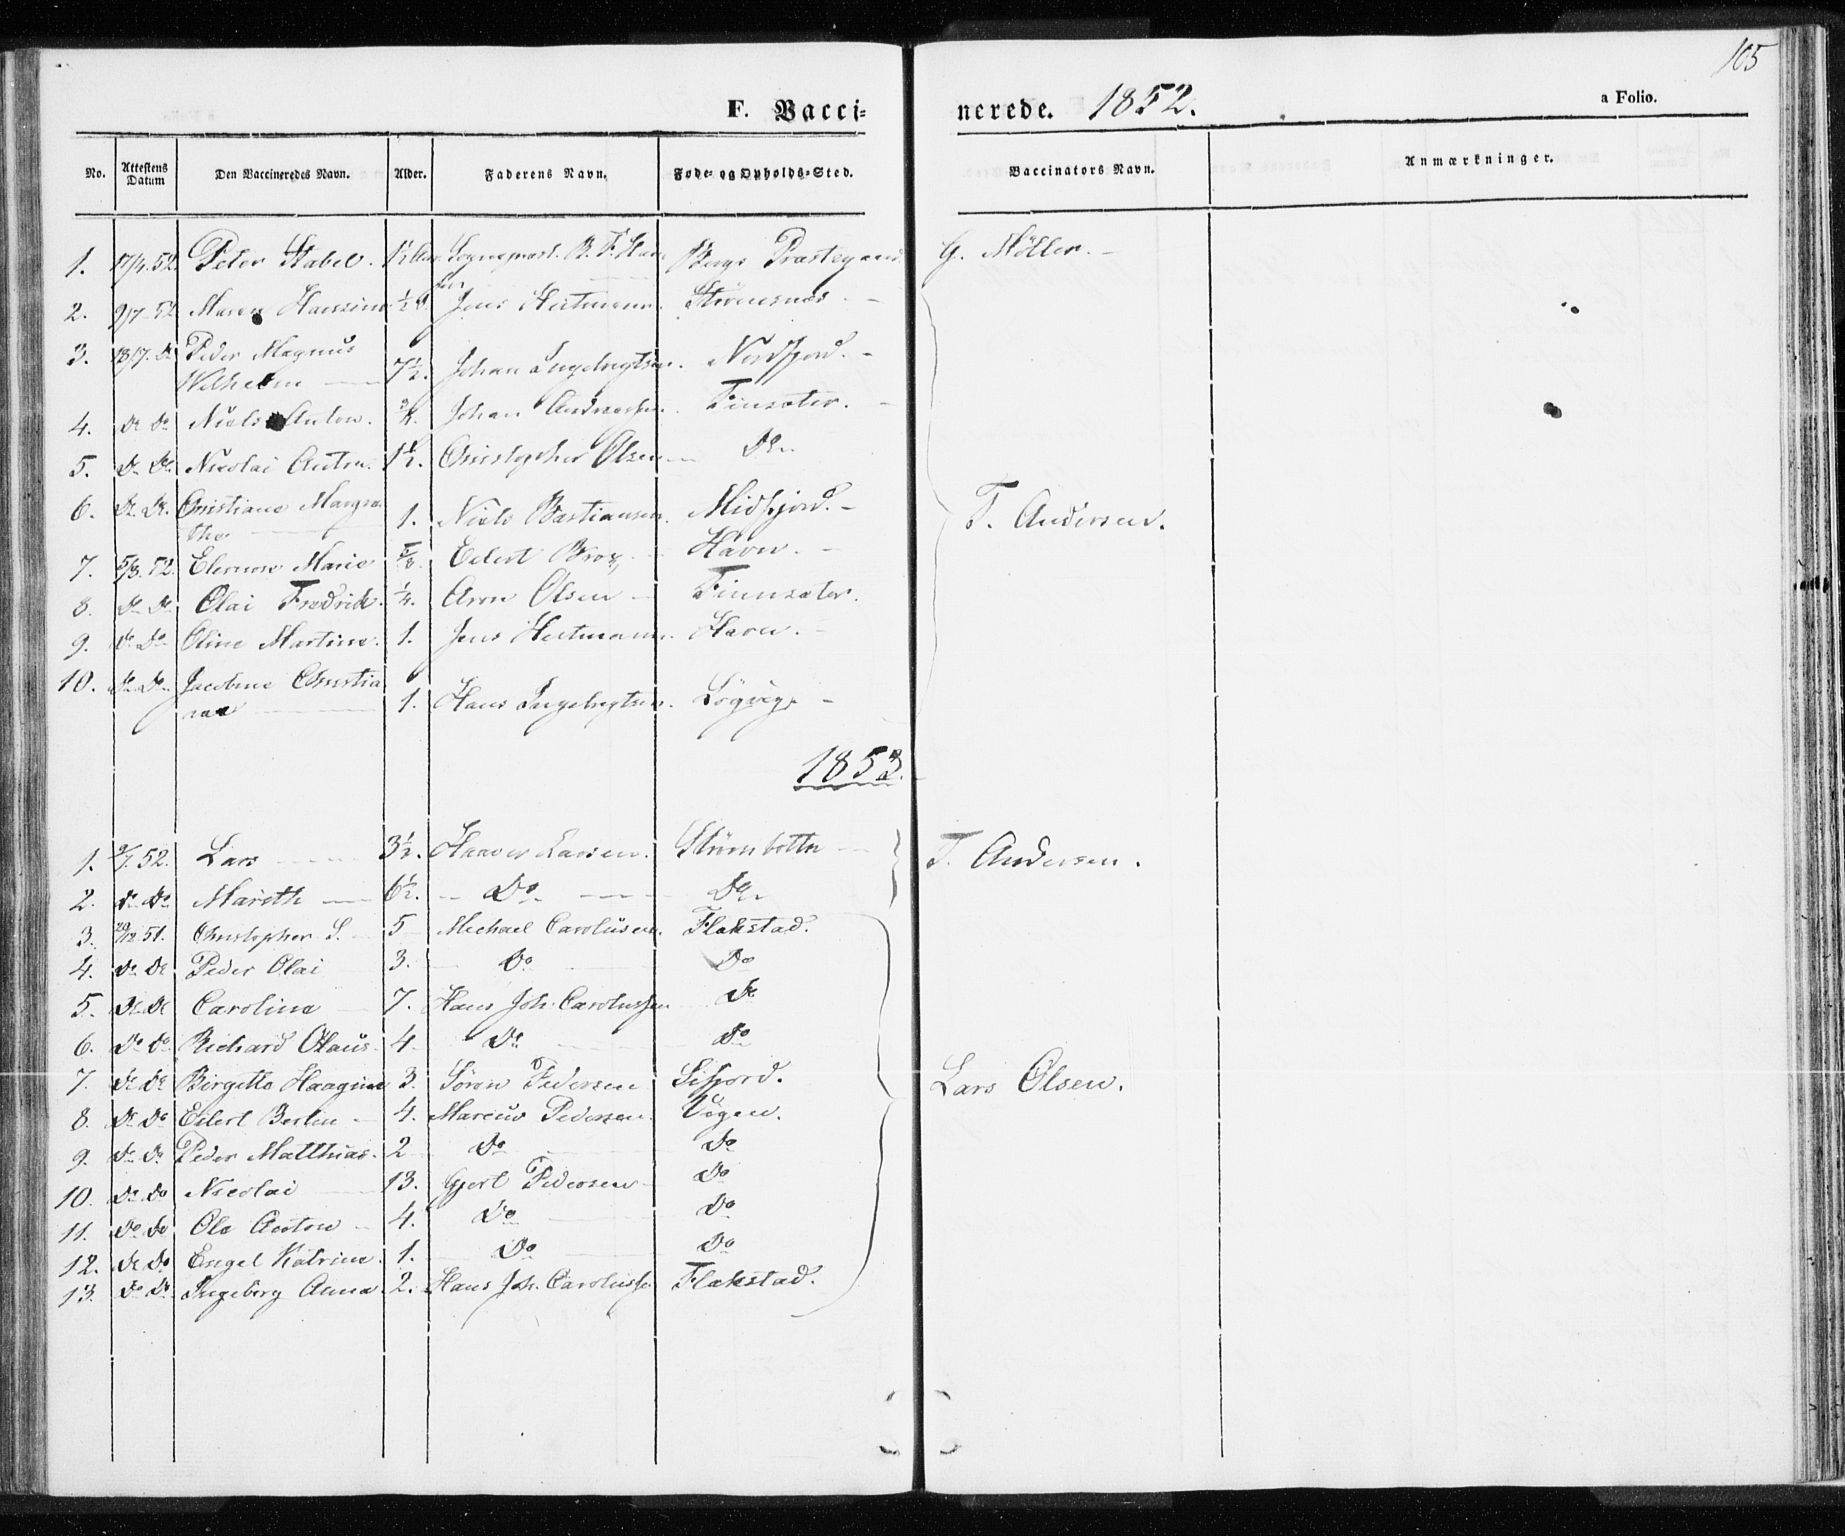 105
F. Vacci-
nerede. 1852.
a Folio.
No. | Attestens Datum | Den Vaccineredes Navn. | Alder. | Faderens Navn. | Føde- og Opholds-Sted. | Vaccinators Navn. | Anmærkninger.
1. 17/4. 52. Peter Stabel. 1½ Sognepræst. B. F. Berge Præstegaard G. Möller. -
2. 9/7 - 52 Maren Hansine ½ Jens Heitmann. -
3. 13/7. Do Peder Magnus
Wilhelm 7½. Johan Ingebrigtsen. Nordfjord. -
4. Do Do Niels Anton. ¾. Johan Andreassen. Finsæter. -
5. Do Do Nicolai Anton. 1½. Christopher Olsen Do
6. Do Do. Christiane Margra
the 1. Niels Bastiansen. Midfjord. - T. Andersen.
7. 5/8. 52. Elenore Marie Eilert Brox, Havn. -
8. Do Do Olai Fredrik. ¼. Aron Olsen Finnsæter.
9. Do Do Oline Martine. 1. Jens Heitmann. Havn. -
10. Do Do Jacobine Christia
nae 1. Hans Ingebrigtsen. -
1853.
1. 9/7. 52. Lars 3½. Haaver Larsen. Strømbotten T. Andersen.
2. Do Do Mareth 6½. Do Do
3. 20/12 51. Christopher S. 5 Michael Carolüsen. Flakstad.
4. Do Do Peder Olai 3. Do Do
5. Do Do Carolina 7. Hans Joh. Carolussen Do
6. Do Do Richard Olaüs 4 Do Do
7. Do Do Birgitte Haagine 3. Søren Pedersen Sifjord. Lars Olsen.
8. Do Do Eilert Berlin 4. Marcus Pedersen. Vogen.
9. Do Do Peder Matthias. 2 Do Do
10. Do Do Nicolai 13. Gjert Pedersen Do
11. Do Do Ole Anton 4. Do Do
12. Do Do Engel Katrine. 1. Do Do
13. Do Do Ingeborg Anna 2. Hans Joh. Carolussen Flakstad.